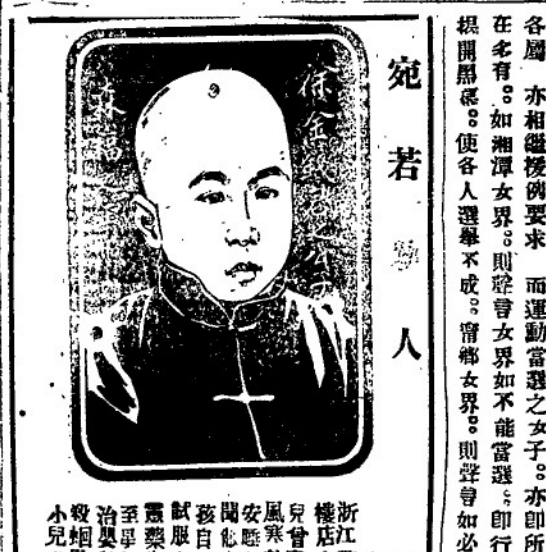 各屬 亦相繼援例要求 而運動當選之女子。亦卽所
在多有。如湘潭女界。則聲言女界如不能當選。卽行
揭開黑幕。使各人選舉不成。甯鄉女界。則聲言如必
宛若 人
保金
浙江
樓店
兒曾
風寒
安睡
聞他
孩自
試服
靈藥
至
治嬰
殺蛔
小兒